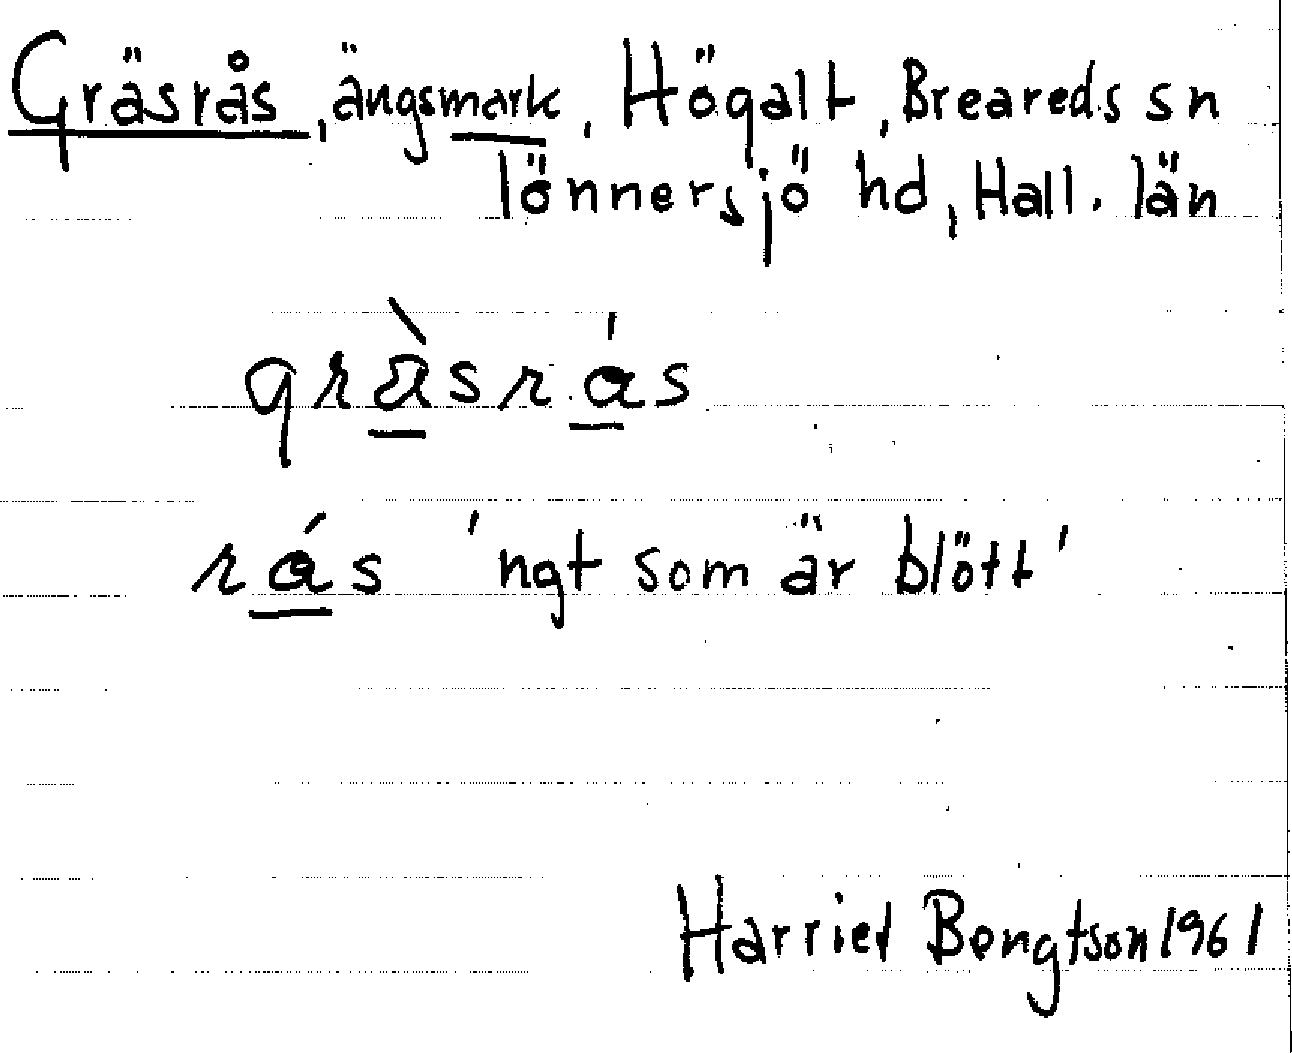 Gräsrås, ängsmark, Högalt, Breareds sn
lönnersjö hd, Hall. län
gràsrás
rás 'ngt som är blött'
Harriet Bengtson 1961